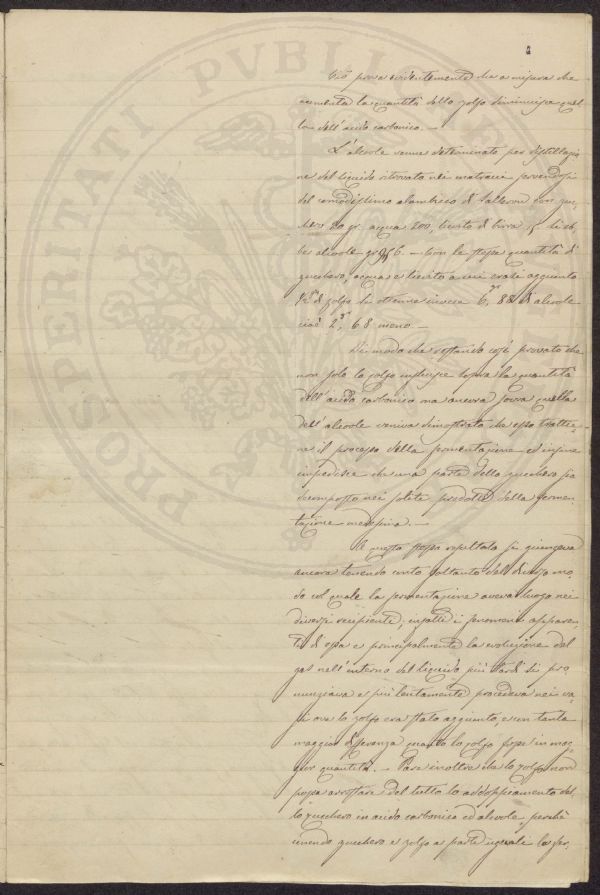 Ciò prova evidentemente che a misura che
aumenta la quantità dello zolfo diminuisce quel-
la dell'acido carbonico. —
L'alcoole venne determinato per distillazio-
ne del liquido ritrovato nei matracci
del comodissimo alambicco di Salleron. Con zuc-
chero 20 gr. acqua 200, lievito di birra 5 si eb-
be alcoole gr 9,56. — Con la stessa quantità di
zucchero, acqua e lievito a cui erasi aggiunto
di zolfo si ottenne invece 6,gr 88 di alcoole
cioè 2,gr 68 meno —
Di modo che restando così provato che
non solo lo zolfo influisce sopra la quantità
dell'acido carbonico ma ancora sovra quella
dell'alcoole veniva dimostrato che esso trattie-
ne il processo della fermentazione ed insieme
impedisce che una parte dello zucchero sia
decomposto nei soliti prodotti della fermen-
tazione medesima. —
A questo stesso risultato si giungeva
ancora tenendo conto soltanto del diverso mo-
do col quale la fermentazione aveva luogo nei
diversi recipienti; infatti i fenomeni apparen-
ti di essa e principalmente la evoluzione del
gas nell'interno del liquido più tardi si pro-
nunziava e più lentamente procedeva nei va-
si ove lo zolfo era stato aggiunto, e con tanta
maggior differenza quanto lo zolfo fosse in mag-
gior quantità. — Pare inoltre che lo zolfo non
possa arrestare del tutto lo sdoppiamento del-
lo zucchero in acido carbonico ed alcoole, perchè
unendo zucchero e zolfo a parti uguali la fer-
PROSPERITATI PVBLICAE